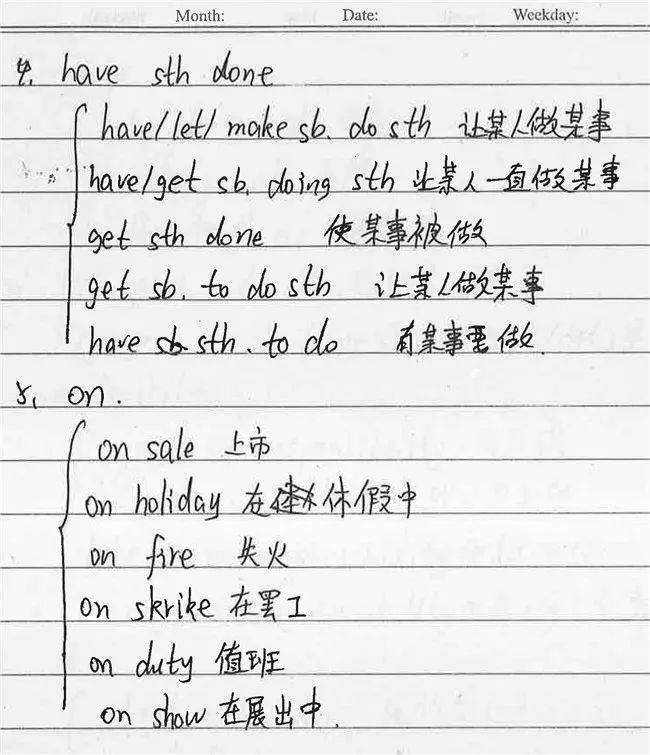 Month: Date: Weekday:
4. have sth done
have/let/make sb. do sth 让某人做某事
have/get sb. doing sth 让某人一直做某事
get sth done 使某事被做
get sb. to do sth 让某人做某事
have sth. to do 有某事要做.
5. on.
on sale 上市
on holiday 在休假中
on fire 失火
on skrike 在罢工
on duty 值班
on show 在展出中.